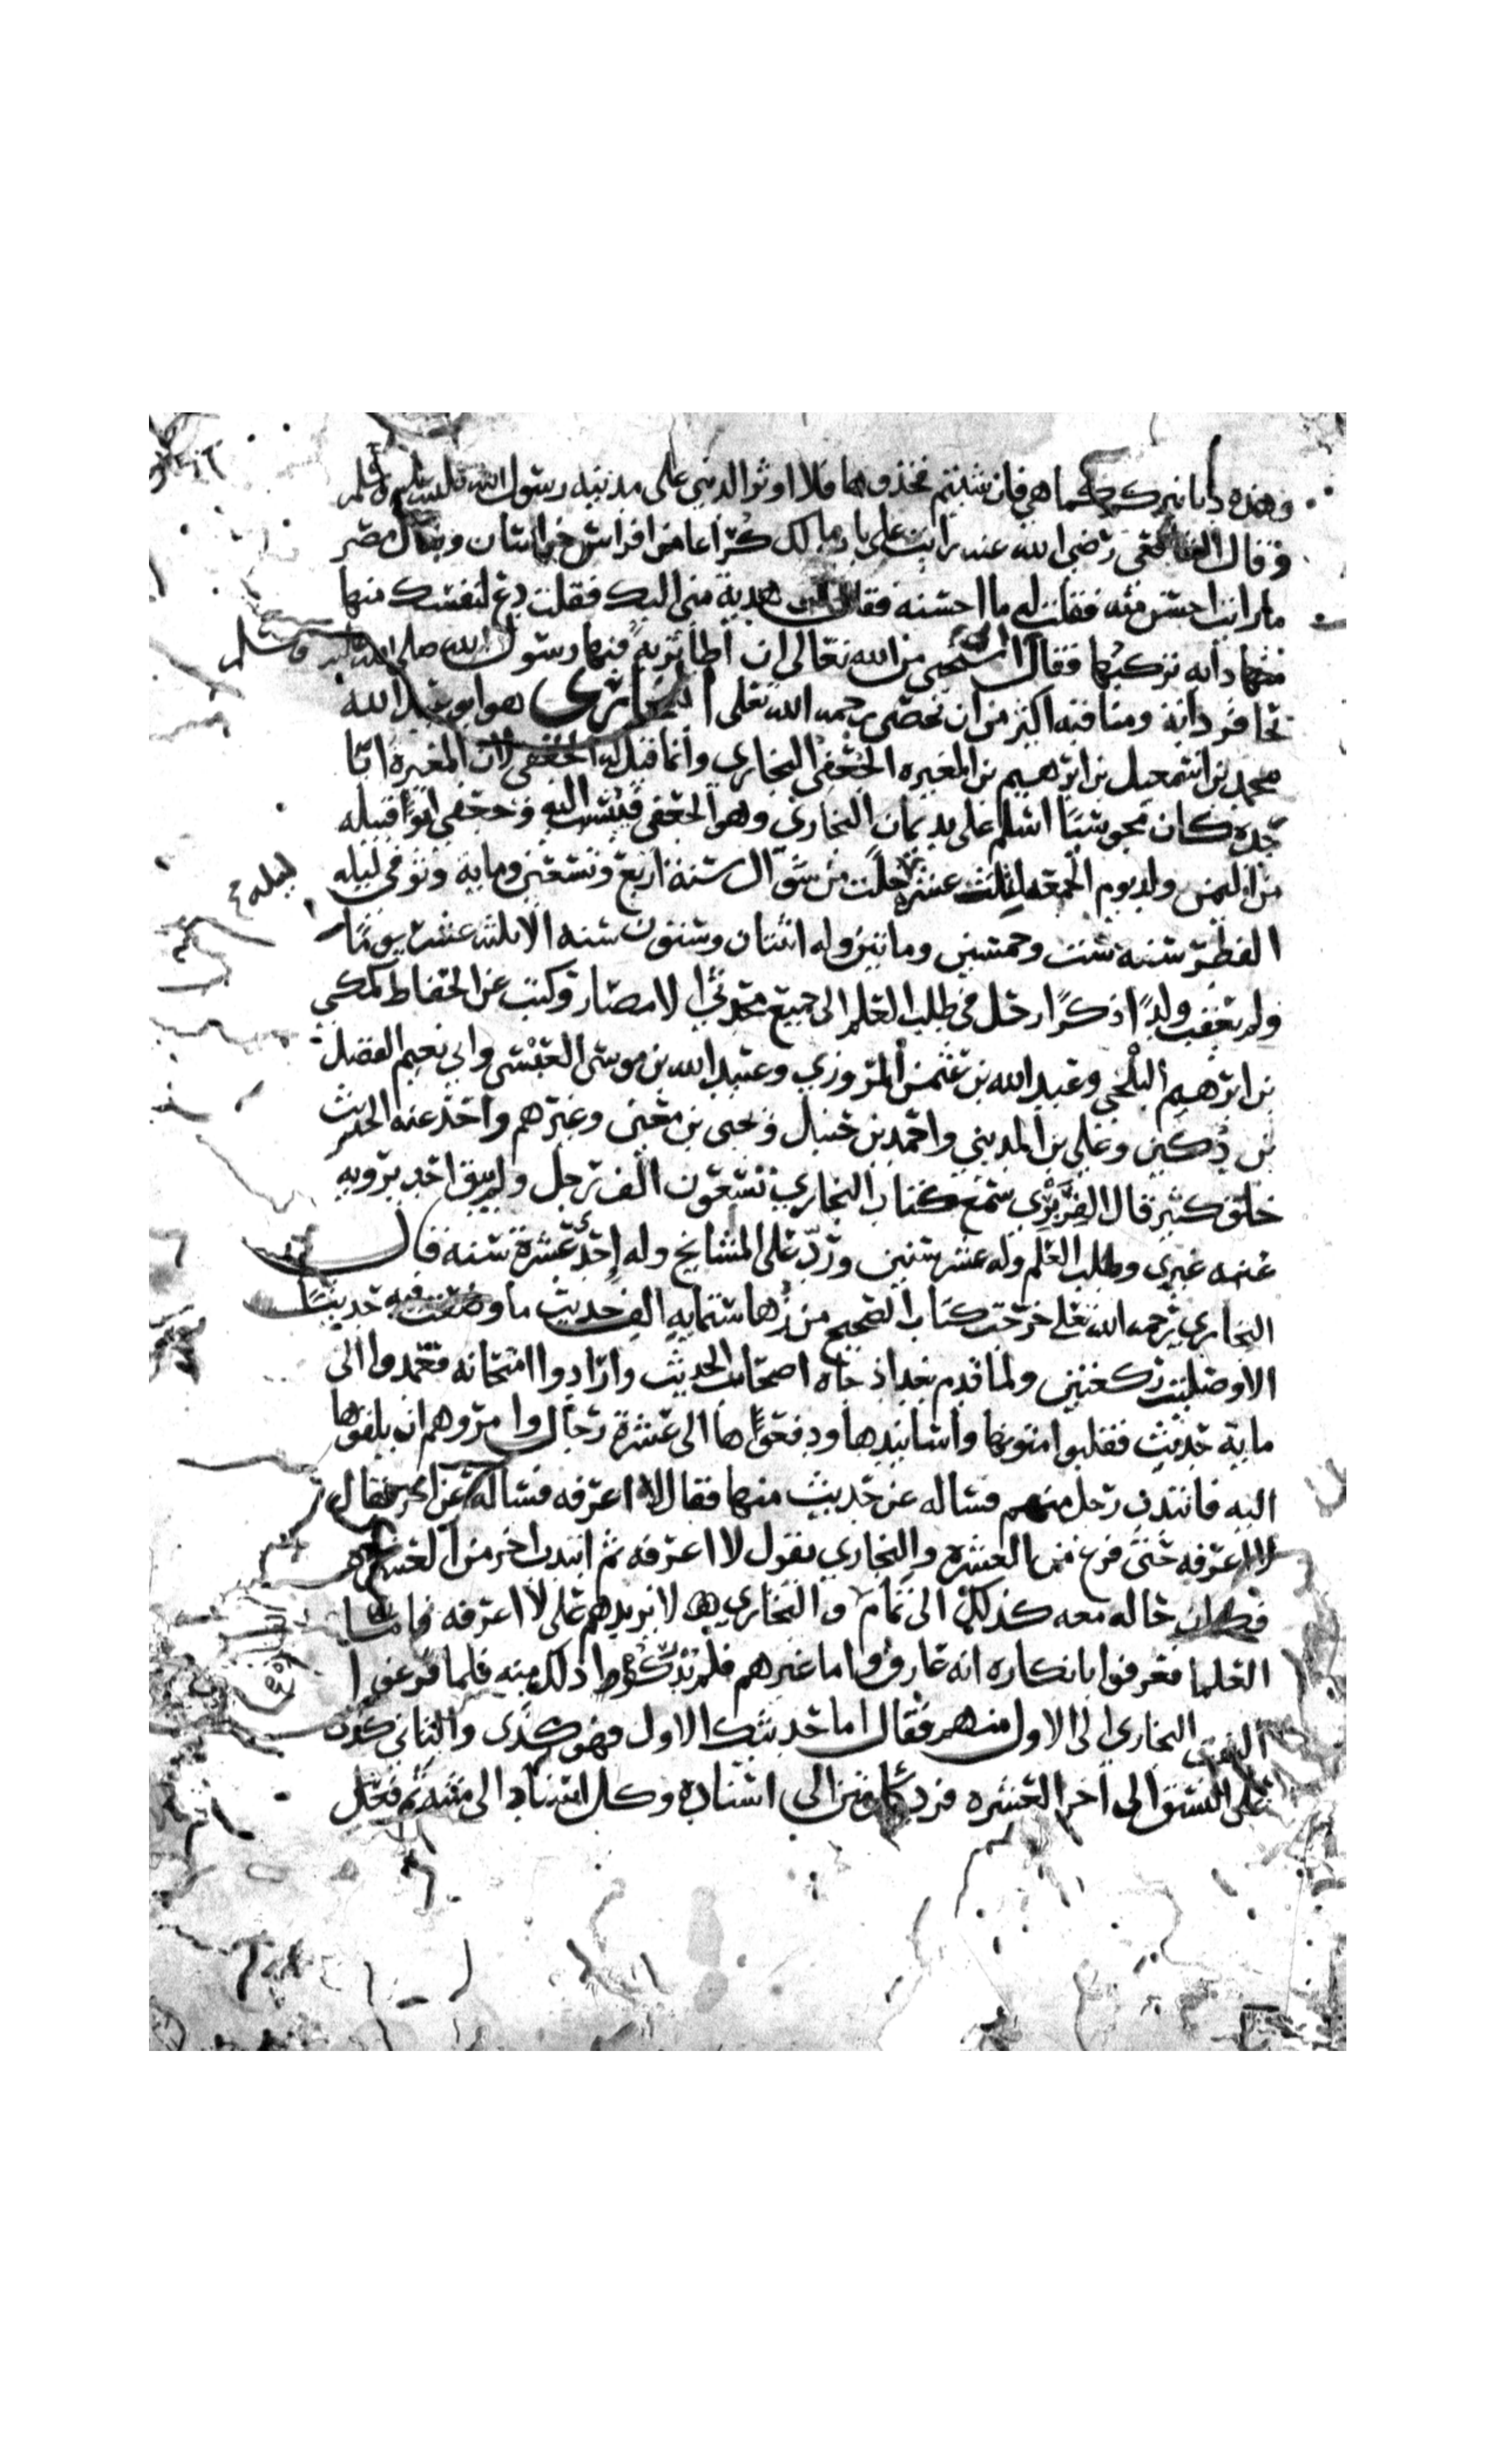 وهذه دنانيركم كما هي فان شيتم فخذوها فلا اوثر الدنيا على مدينة رسول الله صلى الله عليه وسلم
وقال الشافعي رضي الله عنه رايت على باب مالك كراعا من افراس خراسان وبغال مصر
ما رايت احسن منه فقلت له ما احسنه فقال هدية مني اليك فقلت دع لنفسك منها
منها دابه تركبها فقال استحيي من الله تعالى ان اطأ تربةً فيها رسول الله صلى الله عليه وسلم
بحافر دابة ومناقبه اكثر من ان تحصى رحمه الله تعلى البخاري هو ابو عبد الله
محمد بن اسمعيل بن ابرهيم بن المغيره الجعفي البخاري وانما قيل له الجعفي لان المغيرة ابا
جده كان مجوسيًا اسلم على يد يمان البخاري وهو الجعفي فنسب اليه وجعفي ابو قبيله
من اليمن ولد يوم الجمعه لثلث عشرة خلت من شوال سنة اربع وتسعين وماية وتوفي ليله
ليله
الفطر سنة ست وخمسين وماتين وله اثنتان وستون سنه الا ثلثه عشر يومًا
ولم يعقب ولدًا ذكرًا رحل في طلب العلم الى جميع محدثي الامصار وكتب عن الحفاظ كمكي
بن ابرهيم البلخي وعبد الله بن عثمن المروزي وعبيد الله بن موسى العبسي وابي نعيم الفضل
بن دكين وعلي بن المديني واحمد بن حنبل ويحيى بن معين وغيرهم واخذ عنه الحديث
خلق كثير قال الفربري سمع كتاب البخاري تسعون الف رجل ولم يبق احد يرويه
عنه غيري وطلب العلم وله عشر سنين ورد على المشايخ وله احدى عشرة سنه قال
البخاري رحمه الله تعلى خرجت كتاب الصحيح من زها ستماية الف حديث ما وضعت فيه حديثًا
الا وصليت ركعتين ولما قدم بغداذ جاه اصحاب الحديث وارادوا امتحانه فعمدوا الى
ماية حديث فقلبوا متونها واسانيدها ودفعوا ها الى عشرة رجال وامروهم ان يلقوها
اليه فانتدب رجل منهم فساله عن حديث منها فقال لا اعرفه فساله عن اخر فقال
لا اعرفه حتى فرغ من العشره والبخاري يقول لا اعرفه ثم انتدب اخر من العشره
فكان حاله معه كذلك الى تمام والبخاري لا يزيدهم على لا اعرفه فاما
العلما فعرفوا بانكاره انه عارف واما غيرهم فلم يدركوا ذلك منه فلما فرغوا
التفت البخاري الى الاول منهم فقال اما حديثك الاول فهو كذى والثاني كذى
على النسق الى اخر العشره فرد كل متن الى اسناده وكل اسناد الى متنه ثم فعل